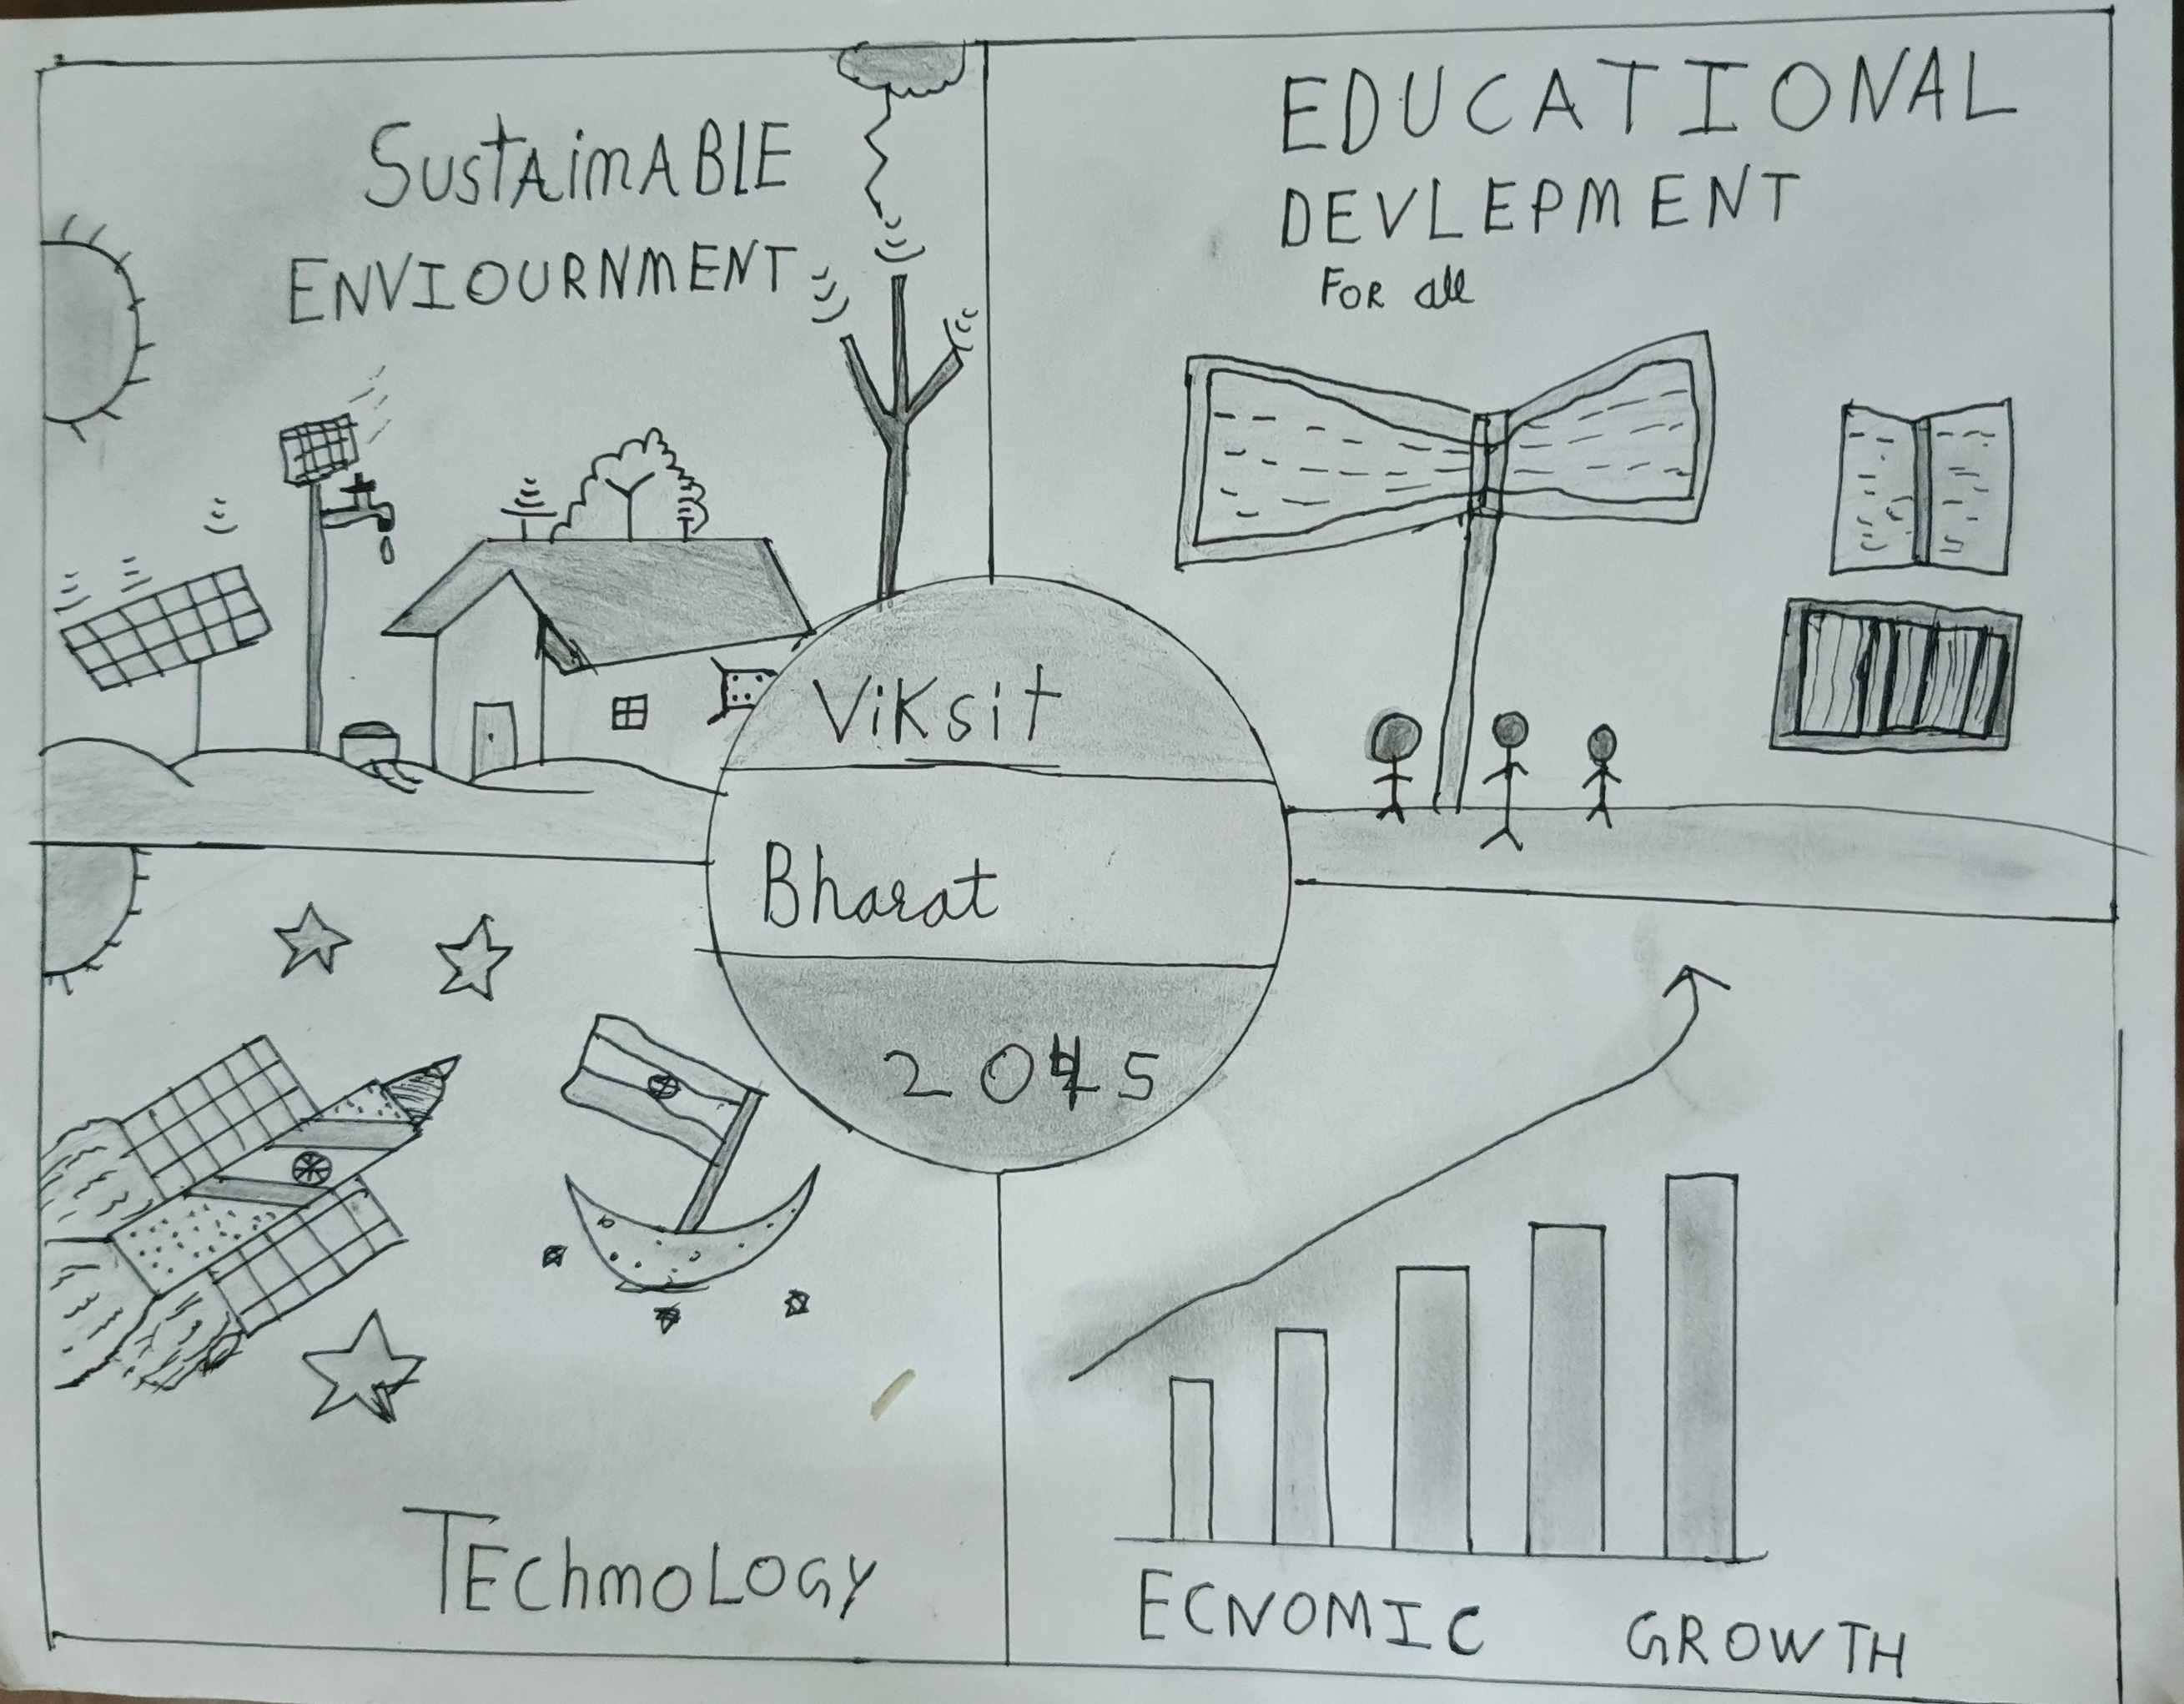 SustAinABLE
ENVIOURNMENT
EDUCATIONAL
DEVLEPMENT
FOR all
Viksit
Bharat
2045
TEChnOLOGY
ECNOMIC GROWTH